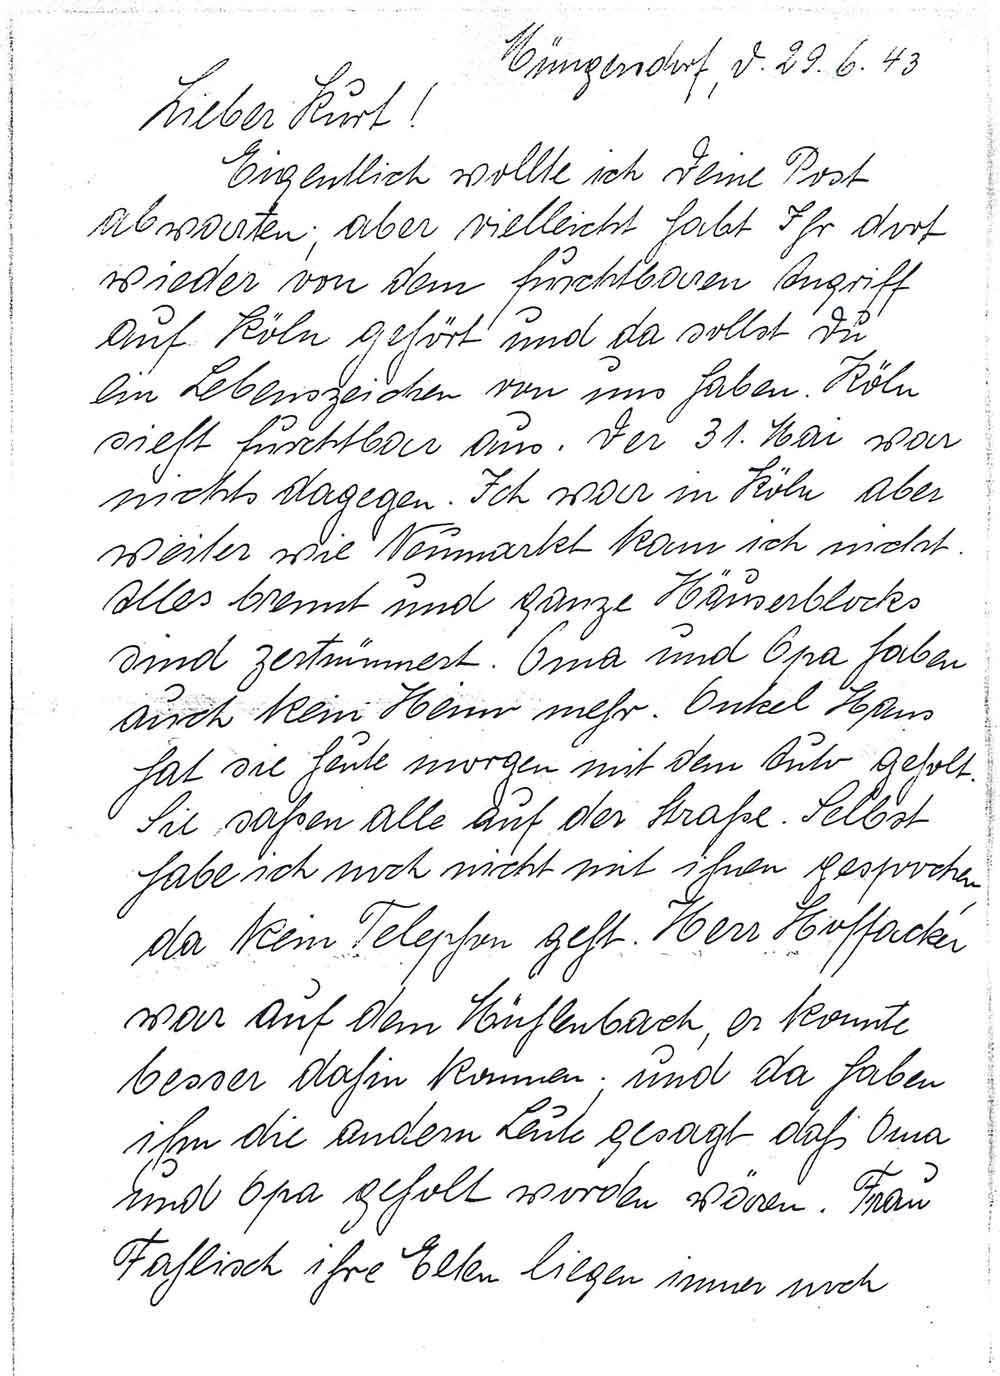 Müngersdorf, d. 29. 6. 43
Lieber Kurt!
Eigentlich wollte ich Deine Post
abwarten, aber vielleicht habt Ihr dort
wieder von dem furchtbaren Angriff
auf Köln gehört und da sollst Du
ein Lebenszeichen von uns haben. Köln
sieht furchtbar aus. Der 31. Mai war
nichts dagegen. Ich war in Köln aber
weiter wie Neumarkt kam ich nicht.
Alles brennt und ganze Häuserblocks
sind zertrümmert. Oma und Opa haben
auch kein Heim mehr. Onkel Hans
hat sie heute morgen mit dem Auto geholt.
Sie saßen alle auf der Straße. Selbst
habe ich noch nicht mit ihnen gesprochen,
da kein Telephon geht. Herr Hoffacker
war auf dem Mühlenbach, er konnte
besser dahin kommen, und da haben
ihm die andern Leute gesagt daß Oma
und Opa geholt worden wären. Frau
Fahlisch ihre Eltern liegen immer noch